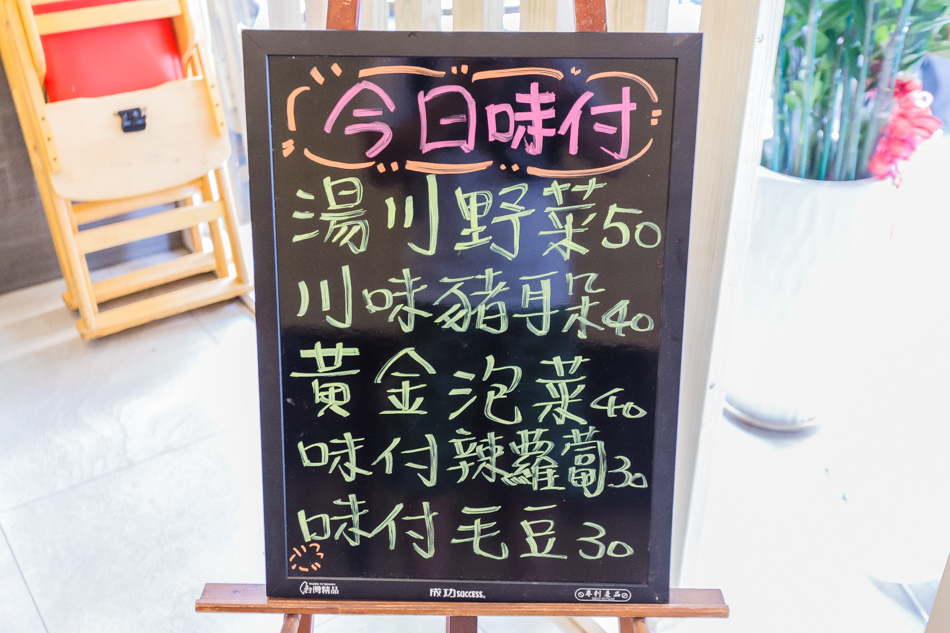 今日味付
湯川野菜50
川味豬耳朵40
黃金泡菜40
味付辣蘿蔔30
味付毛豆30
台灣精品
成功SUCCESS.
專利產品